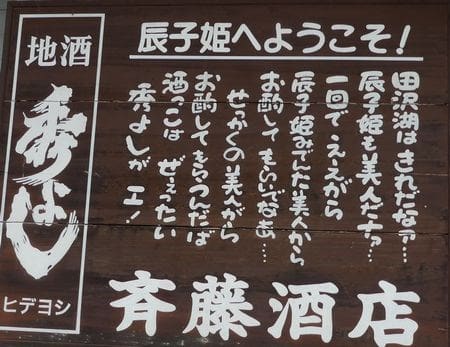 辰子姫へようこそ！
田沢湖はきれだなァ…
辰子姫も美人だナァ…
一回でえゝがら
辰子姫みでた美人から
お酌して もいでなあ…
せっかくの美人がら
お酌してもらうんだば
酒っこは ぜぇったい
秀よしが エ！
地酒
秀よし
ヒデヨシ
斉藤酒店